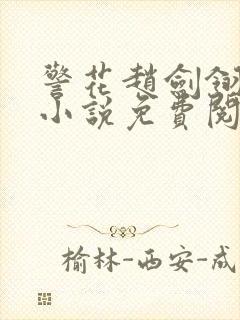 警花趙劍翎
小說免費閱
榆林-西安-成